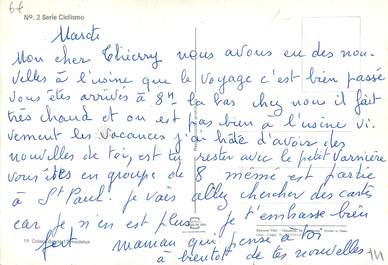 64
Nº. 2 Serie Ciclismo
Mardi
Mon cher Thierry nous avons eu des nou-
velles à l'usine que le voyage c'est bien passé
vous êtes arrivés à 8h la bas chez nous il fait
très chaud et on est pas bien à l'usine vi-
vement les vacances j'ai hâte d'avoir des
nouvelles de toi, est tu rester avec le petit Varnière
vous êtes en groupe de 8 mémé est partie
à St Paul. je vais allez chercher des cartes
car je n'en est plus je t'embrasse bien
fort maman qui pense à toi
à bientôt de tes nouvelles